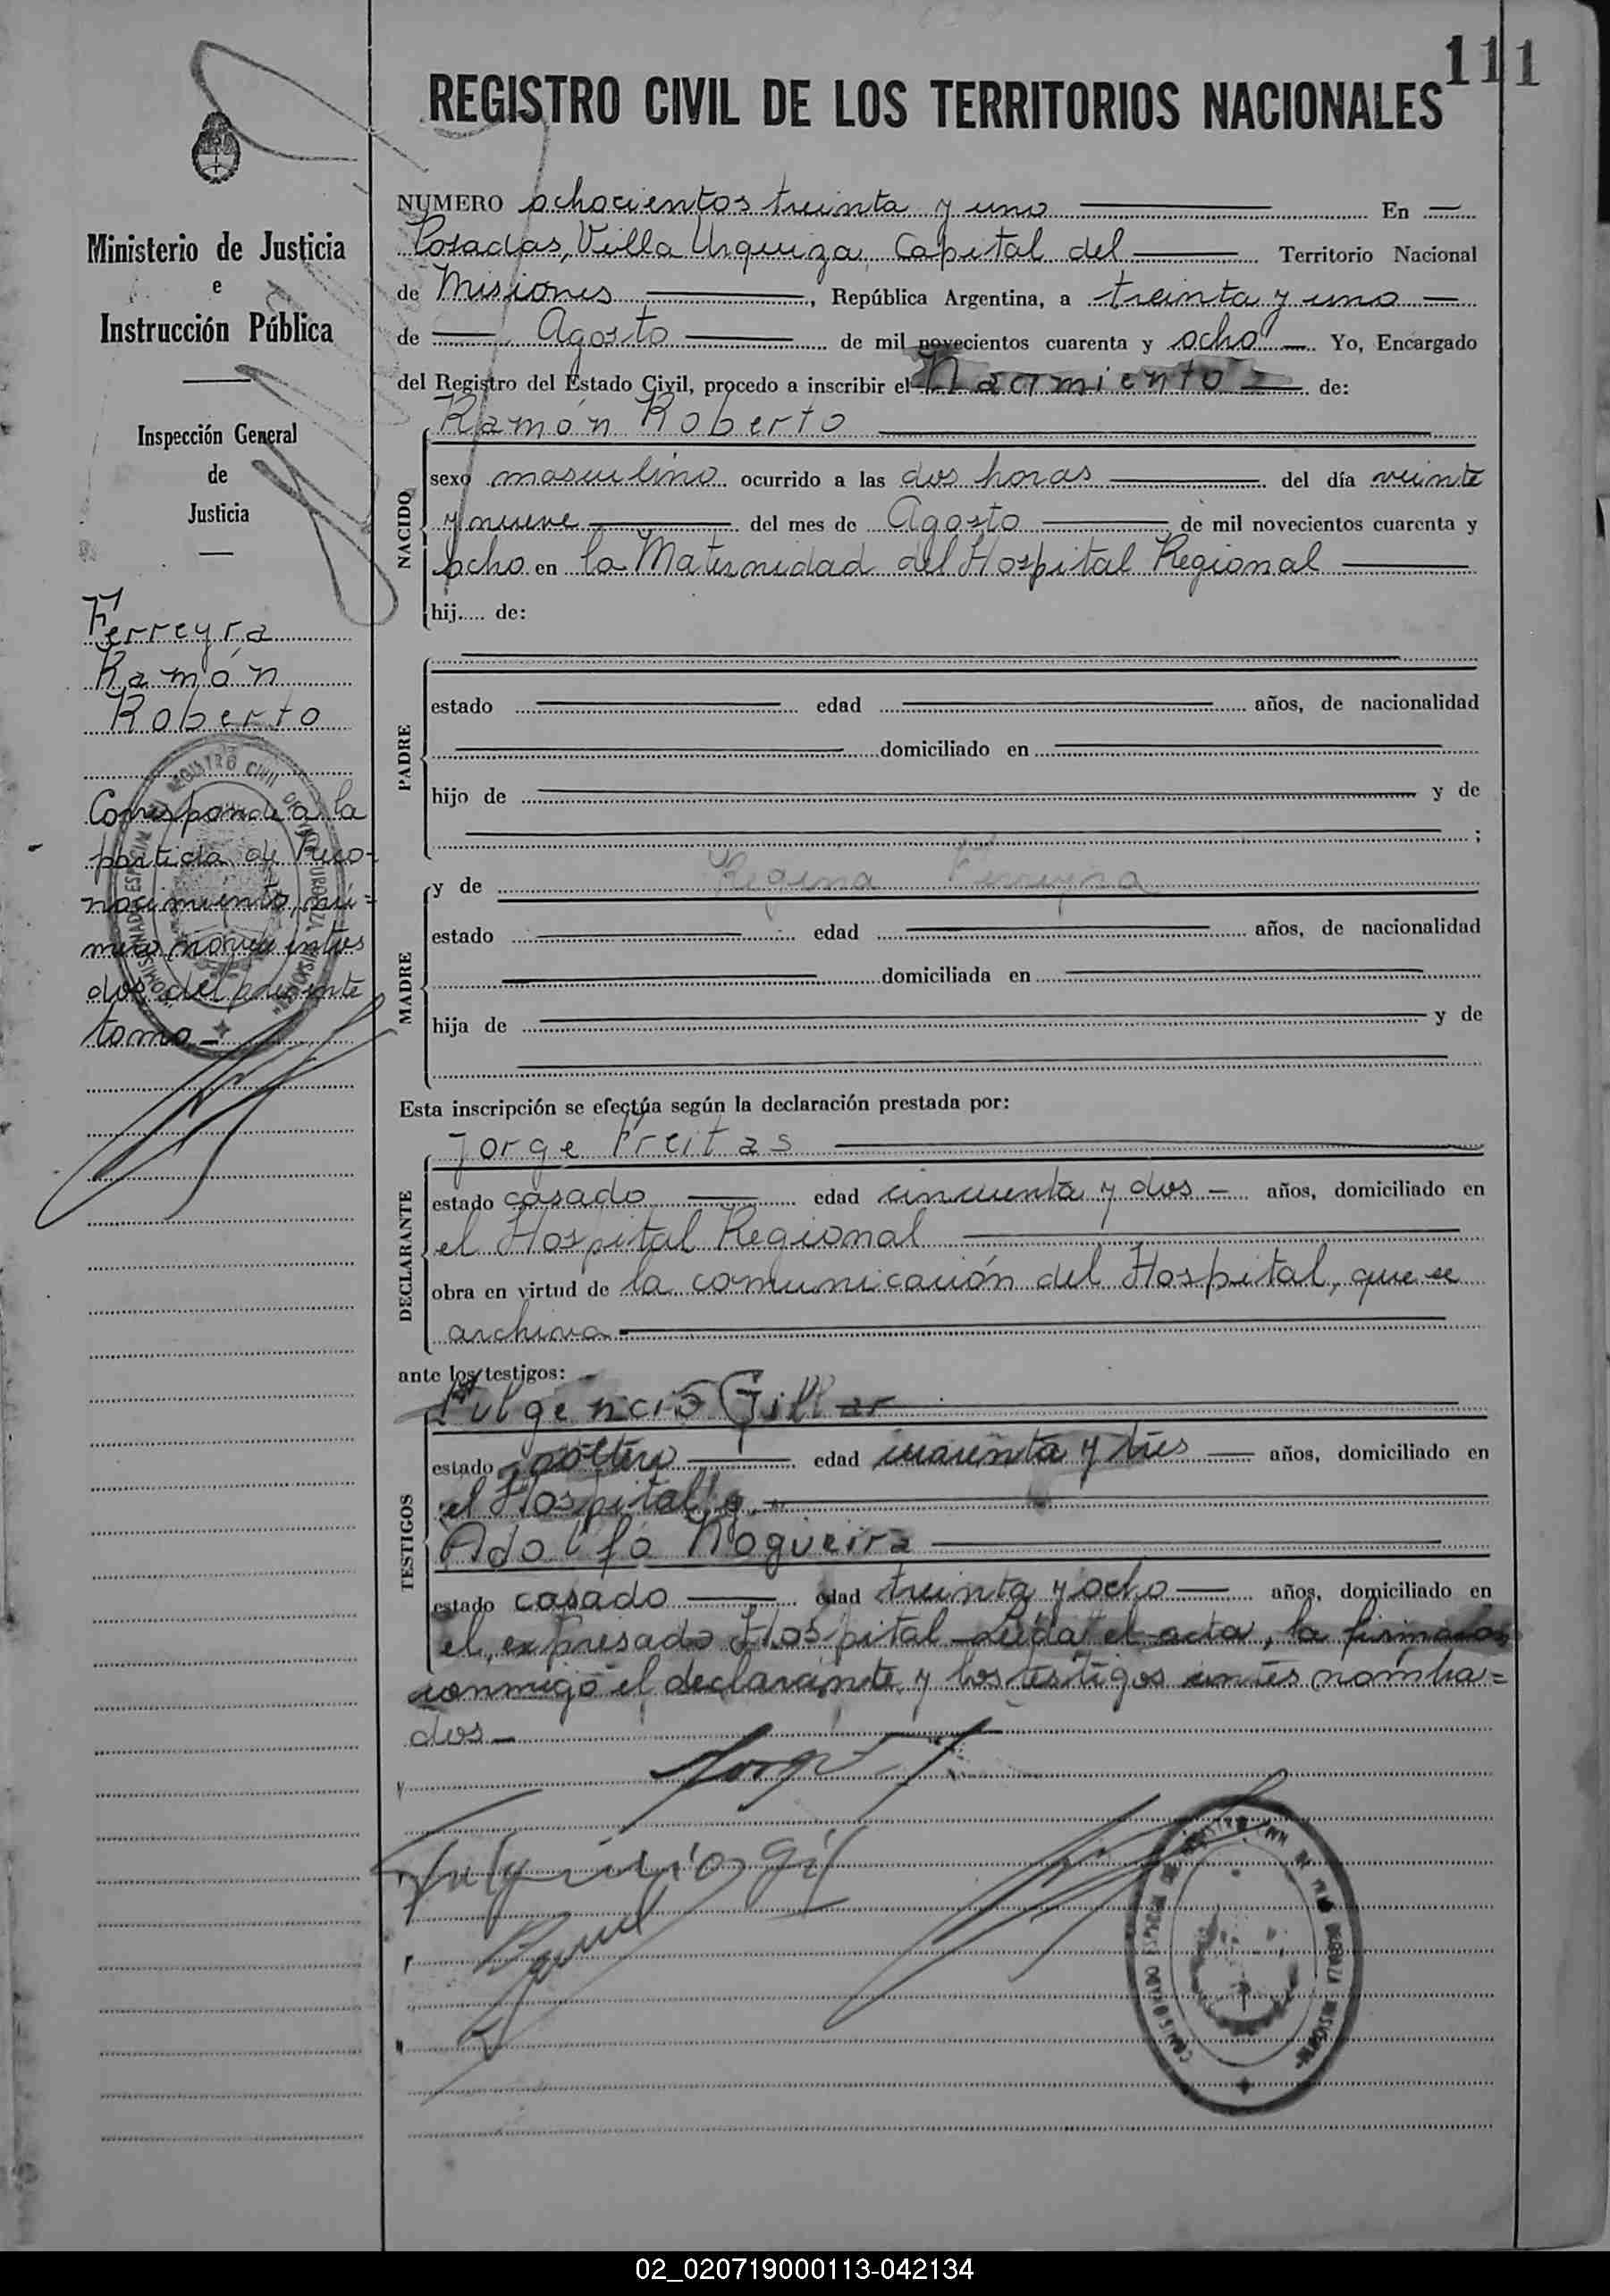 111
REGISTRO CIVIL DE LOS TERRITORIOS NACIONALES
Ministerio de Justicia
e
Instrucción Pública
Inspección General
de
Justicia
Ferreyra
Ramón
Roberto
Corresponde a la
partida de Reco-
nocimiento, nú=
mero novecientos
dos del presente
tomo.-
NUMERO ochocientos treinta y uno En
Posadas, Villa Urquiza, Capital del Territorio Nacional
de Misiones, República Argentina, a treinta y uno
de Agosto de mil novecientos cuarenta y ocho Yo, Encargado
del Registro del Estado Civil, procedo a inscribir el Nacimiento de:
Ramón Roberto
NACIDO
sexo masculino ocurrido a las dos horas del día veinte
y nueve del mes de Agosto de mil novecientos cuarenta y
ocho en la Maternidad del Hospital Regional
hij.... de:
PADRE
estado edad años, de nacionalidad
domiciliado en
hijo de y de
;
MADRE
y de Regina Ferreyra
estado edad años, de nacionalidad
domiciliada en
hija de y de
Esta inscripción se efectúa según la declaración prestada por:
Jorge Freitas
DECLARANTE
estado casado edad cincuenta y dos - años, domiciliado en
el Hospital Regional
obra en virtud de la comunicación del Hospital, que se
archiva
ante los testigos:
Fulgencio Gill
TESTIGOS
estado soltero edad cuarenta y tres años, domiciliado en
el Hospital y.
Adolfo Nogueira
estado casado edad treinta y ocho años, domiciliado en
el expresado Hospital - Leída el acta, la firmaron
conmigo el declarante y los testigos antes nombra=
dos -
Jorge
Fulgencio Gil
02_020719000113-042134